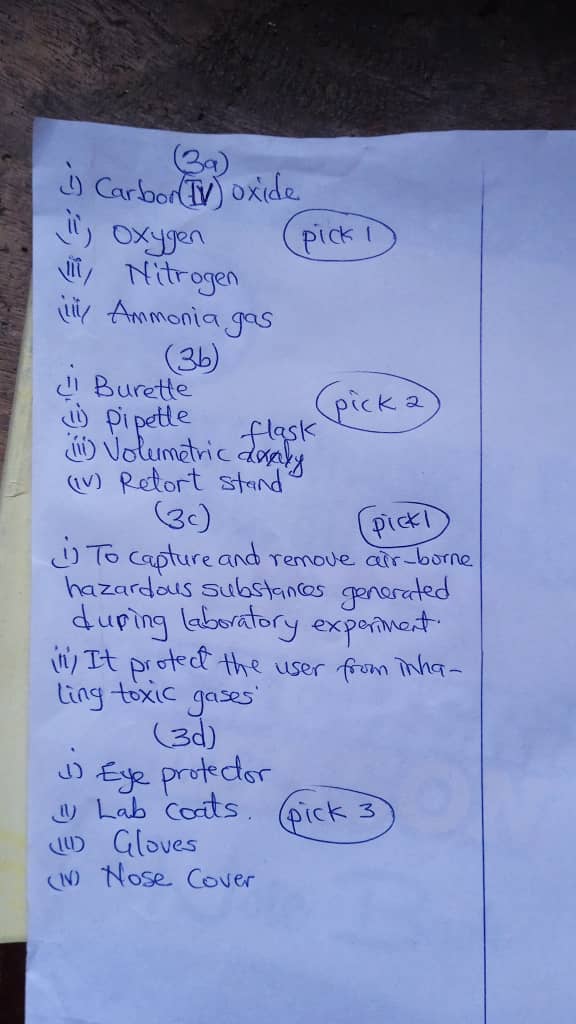 (3a)
i) Carbon(IV) oxide
ii) Oxygen
pick 1
iii) Nitrogen
iiii) Ammonia gas
(3b)
i) Burette
pick 2
ii) Pipette
flask
iii) Volumetric
(iv) Retort stand
(3c)
pick 1
i) To capture and remove air-borne
hazardous substances generated
during laboratory experiment.
ii) It protect the user from inha-
ling toxic gases
(3d)
i) Eye protector
ii) Lab coats.
pick 3
(III) Gloves
(IV) Nose Cover